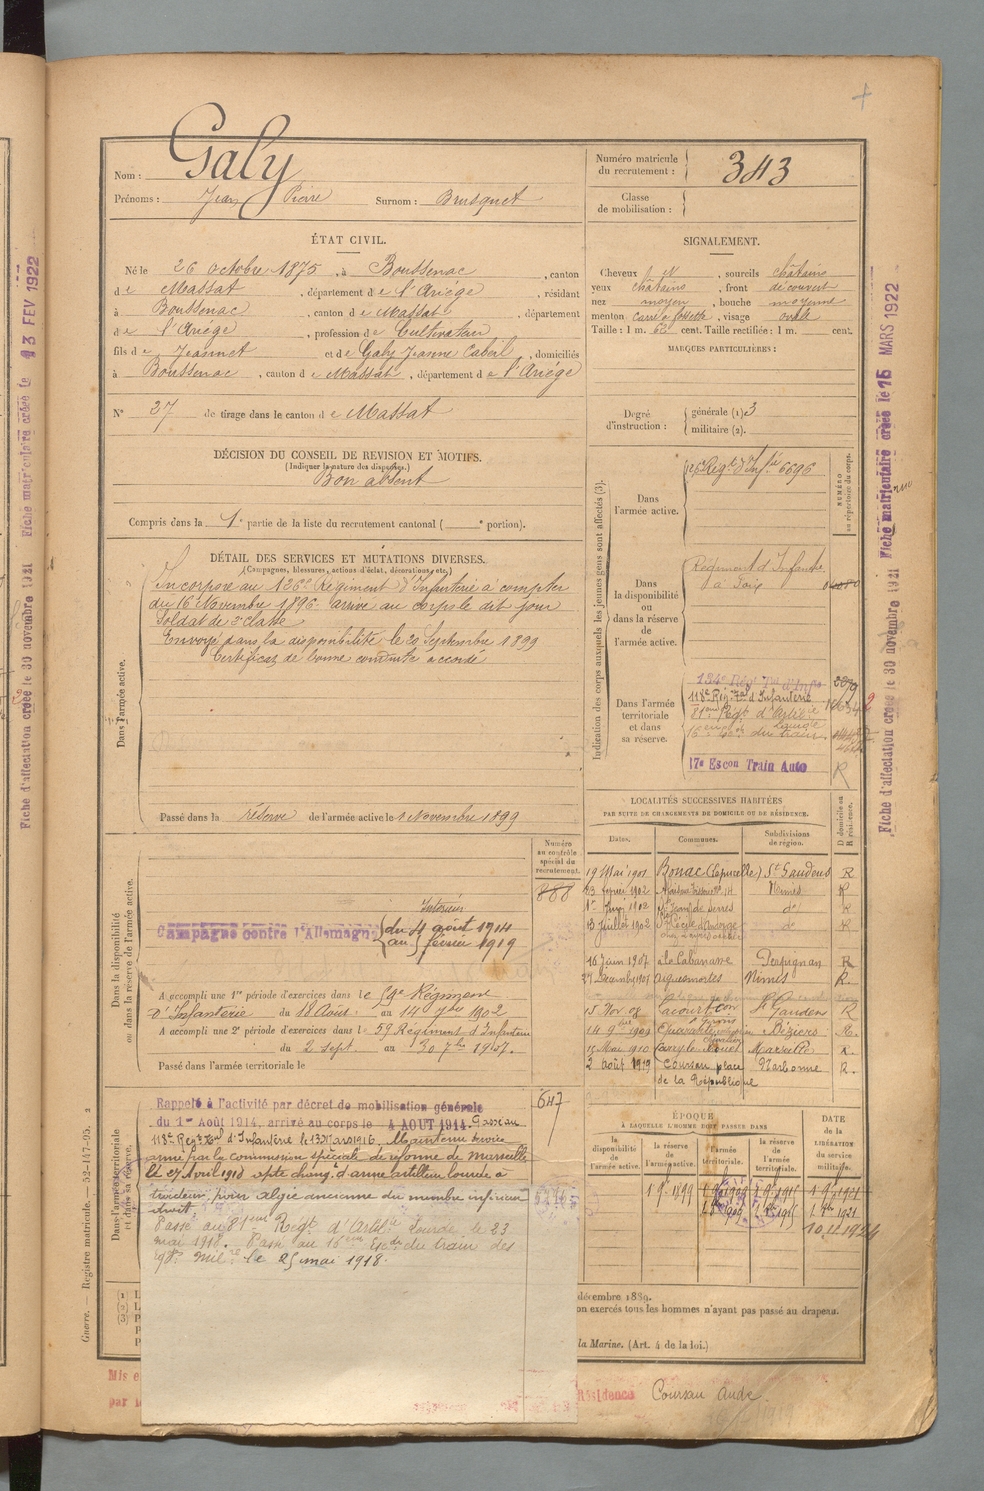 Nom : Galy
Prénoms : Jean Pierre Surnom : Brusquet
Numéro matricule du recrutement : 343
Classe de mobilisation :
ÉTAT CIVIL.
Né le 26 octobre 1875, à Boussenac, canton
de Massat, département de l'Ariège, résidant
à Boussenac, canton de Massat, département
de l'Ariège, profession de Cultivateur
fils de Jeannet et de Galy Jeanne Cabeil, domiciliés
à Boussenac, canton de Massat, département de l'Ariège
N° 27 de tirage dans le canton de Massat
SIGNALEMENT.
Cheveux , sourcils châtains
yeux châtains, front découvert
nez moyen, bouche moyenne
menton carré à fossette, visage ovale
Taille : 1 m. 62 cent. Taille rectifiée : 1 m. cent.
MARQUES PARTICULIÈRES :
Degré d'instruction : générale (1). 3
militaire (2).
DÉCISION DU CONSEIL DE REVISION ET MOTIFS.
(Indiquer la nature des dispenses.)
Bon absent
Compris dans la 1e partie de la liste du recrutement cantonal ( e portion).
DÉTAIL DES SERVICES ET MUTATIONS DIVERSES.
(Campagnes, blessures, actions d'éclat, décorations, etc.)
Dans l'armée active.
Incorporé au 126e Régiment d'Infanterie à compter
du 16 Novembre 1896. arrivé au corps le dit jour
Soldat de 2e classe
Envoyé dans la disponibilité le 20 Septembre 1899
Certificat de bonne conduite accordé
Passé dans la réserve de l'armée active le 1 Novembre 1899
Indication des corps auxquels les jeunes gens sont affectés (3).
NUMÉRO au répertoire du corps.
Dans l'armée active.
126 Régt d'Infie 6696
Dans la disponibilité ou dans la réserve de l'armée active.
Régiment d'Infanterie
à Foix
Dans l'armée territoriale et dans sa réserve.
134e Régt Tal d'Infie
118e Rég. Tal d'Infanterie
81eme Régt d'Artillerie lourde
16eme du train.
17e Escon Train Auto R
LOCALITÉS SUCCESSIVES HABITÉES
PAR SUITE DE CHANGEMENTS DE DOMICILE OU DE RÉSIDENCE.
D domicile ou R résidence.
Dates. Communes. Subdivisions de région.
19 Mai 1901 Bonac St Gaudens R
23 février 1902 Nimes R
1er 1902 de Serres do R
13 juillet 1902 Ste Cécile d'Andorge do R
16 Juin 1907 La Cabanasse Perpignan R
27 Décembre 1907 Aiguesmortes Nimes R.
15 Nov. 08 Lacourt St Gaudens R
14 9bre 1909 Béziers R.
15 Mai 1910 Carry le Rouet Marseille R.
2 août 1919 Coursan place Narbonne R.
de la République
Dans la disponibilité ou dans la réserve de l'armée active.
Numéro au contrôle spécial du recrutement.
888
Intérieur
Campagne contre l'Allemagne
du 4 août 1914
au 5 février 1919
A accompli une 1re période d'exercices dans le 59e Régiment
d'Infanterie du 18 Août au 14 7bre 1902
A accompli une 2e période d'exercices dans le 59 Régiment d'Infanterie
du 2 sept. au 30 7bre 1907.
Passé dans l'armée territoriale le
Dans l'armée territoriale et dans sa réserve.
647
Rappelé à l'activité par décret de mobilisation générale
du 1er Août 1914, arrivé au corps le 4 AOUT 1914. Passé au
118e Régt Tal d'Infanterie le 13 Mars 1916. Maintenu service
armé par la commission spéciale de réforme de Marseille
le 27 Avril 1918 apte changt d'arme artillerie lourde à
tracteur, pour algie ancienne du membre inférieur
droit.
Passé au 81eme Régt d'Artie lourde le 23
mai 1918. Passé au 16eme Escon du train des
éq. Milres le 25 mai 1918.
ÉPOQUE
À LAQUELLE L'HOMME DOIT PASSER DANS
la disponibilité de l'armée active.
la réserve de l'armée active.
l'armée territoriale.
la réserve de l'armée territoriale.
DATE de la LIBÉRATION du service militaire.
1 9bre 1899
10.11.1924
décembre 1889.
on exercés tous les hommes n'ayant pas passé au drapeau.
la Marine. (Art. 4 de la loi.)
Mis e
par l
Résidence Coursan Aude
Guerre. — Registre matricule. — 52-147-95. 2
Fiche d'affectation créée le 30 novembre 1921 Fiche matriculaire créée le 13 FEV 1922
Fiche d'affectation créée le 30 novembre 1921 Fiche matriculaire créée le 15 MARS 1922